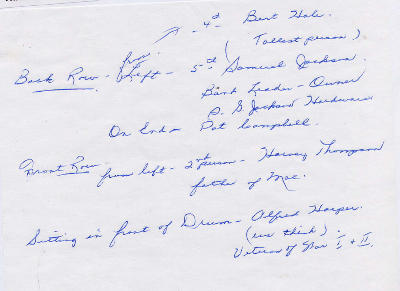 - 4th Bert Hale.
(Tallest person)
Back Row - from Left - 5th Samuel Jackson.
Band Leader - Owner
S. G. Jackson Hardware
On End - Pat Campbell.
Front Row
from left - 2nd person - Harvey Thompson
father of Mac.
Sitting in front of Drum - Alfred Harper.
(we think).
Veteran of War I + II.